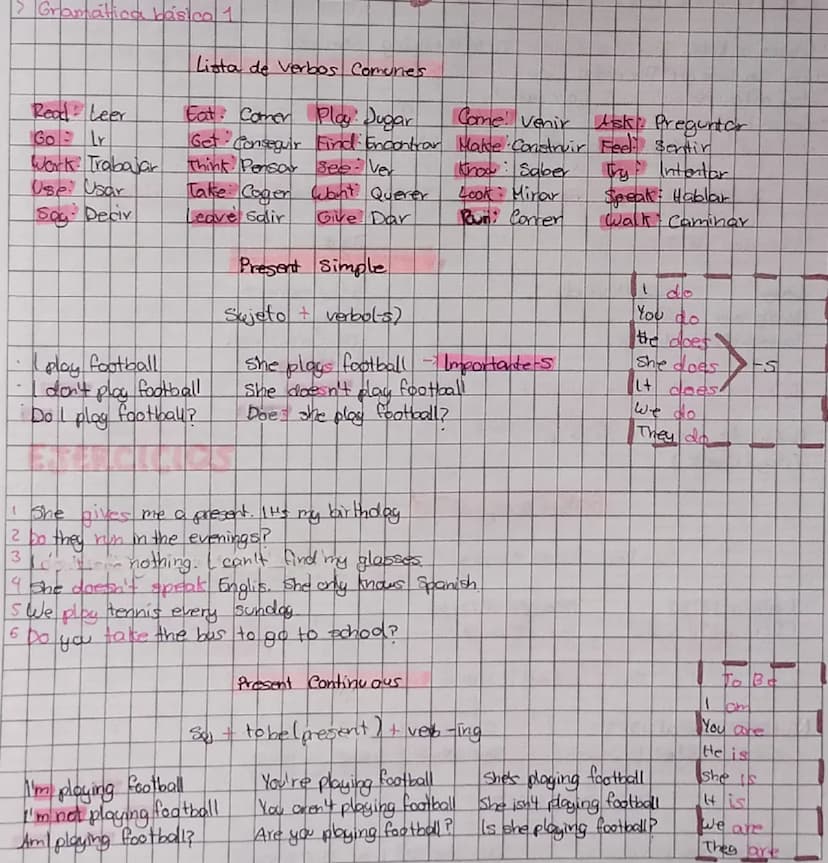 > Gramática básica 1
Lista de verbos comunes
Read: Leer Eat: Comer Play: Jugar Come: Venir Ask: Preguntar
Go: Ir Get: Conseguir Find: Encontrar Make: Construir Feel: Sentir
Work: Trabajar Think: Pensar See: Ver Know: Saber Try: Intentar
Use: Usar Take: Coger Want: Querer Look: Mirar Speak: Hablar
Say: Decir Leave: Salir Give: Dar Run: Correr Walk: Caminar
Present Simple
Sujeto + verbo(-s)
I do
You do
He does
She does -s
It does
We do
They do
· I play football She plays football → Importante -s
· I don't play football She doesn't play football
Do I play football? Does she play football?
EJERCICIOS
1 She gives me a present. It's my birthday
2 Do they run in the evenings?
3 I nothing. I can't find my glasses.
4 She doesn't speak Englis. She only knows Spanish.
5 We play tennis every sunday
6 Do you take the bus to go to school?
Present Continuous
Suj + to be (present) + verb -ing
To Be
I am
You are
He is
She is
It is
We are
They are
I'm playing football You're playing football She's playing football
I'm not playing football You aren't playing football She isn't playing football
Am I playing football? Are you playing football? Is she playing football?